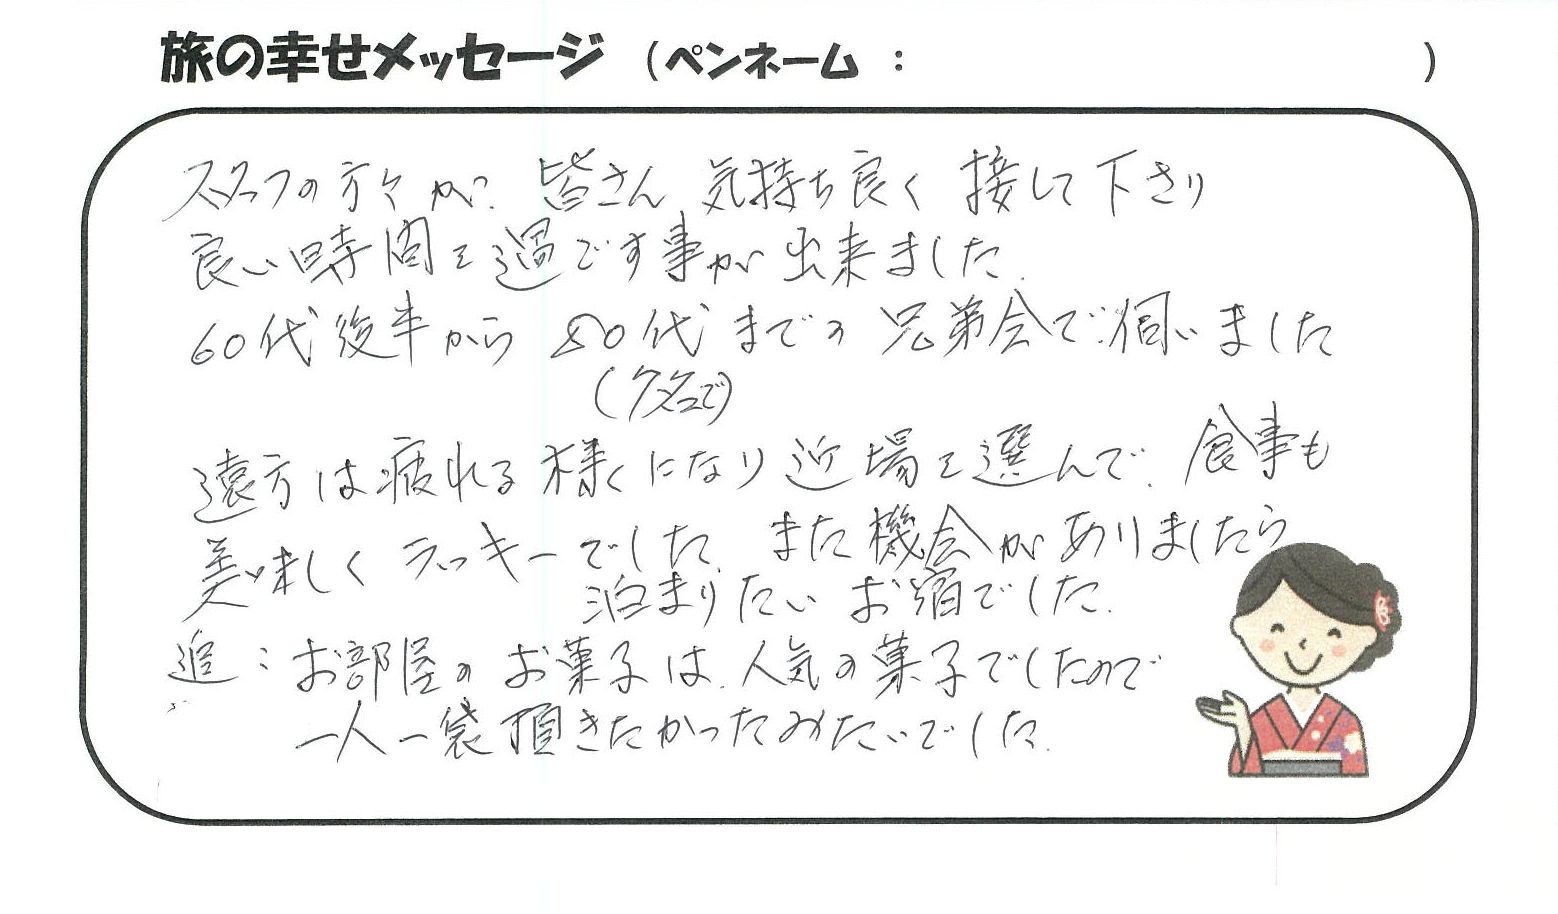 旅の幸せメッセージ (ペンネーム : )
スタッフの方々が、皆さん 気持ち良く 接して下さり
良い時間を過ごす事が出来ました.
60代後半から 80代までの 兄弟会で伺いました
(7名で)
遠方は疲れる様になり 近場を選んで、食事も
美味しく ラッキーでした. また機会がありましたら
泊まりたい お宿でした.
追 : お部屋の お菓子は、人気の菓子でしたので
一人一袋 頂きたかったみたいでした.